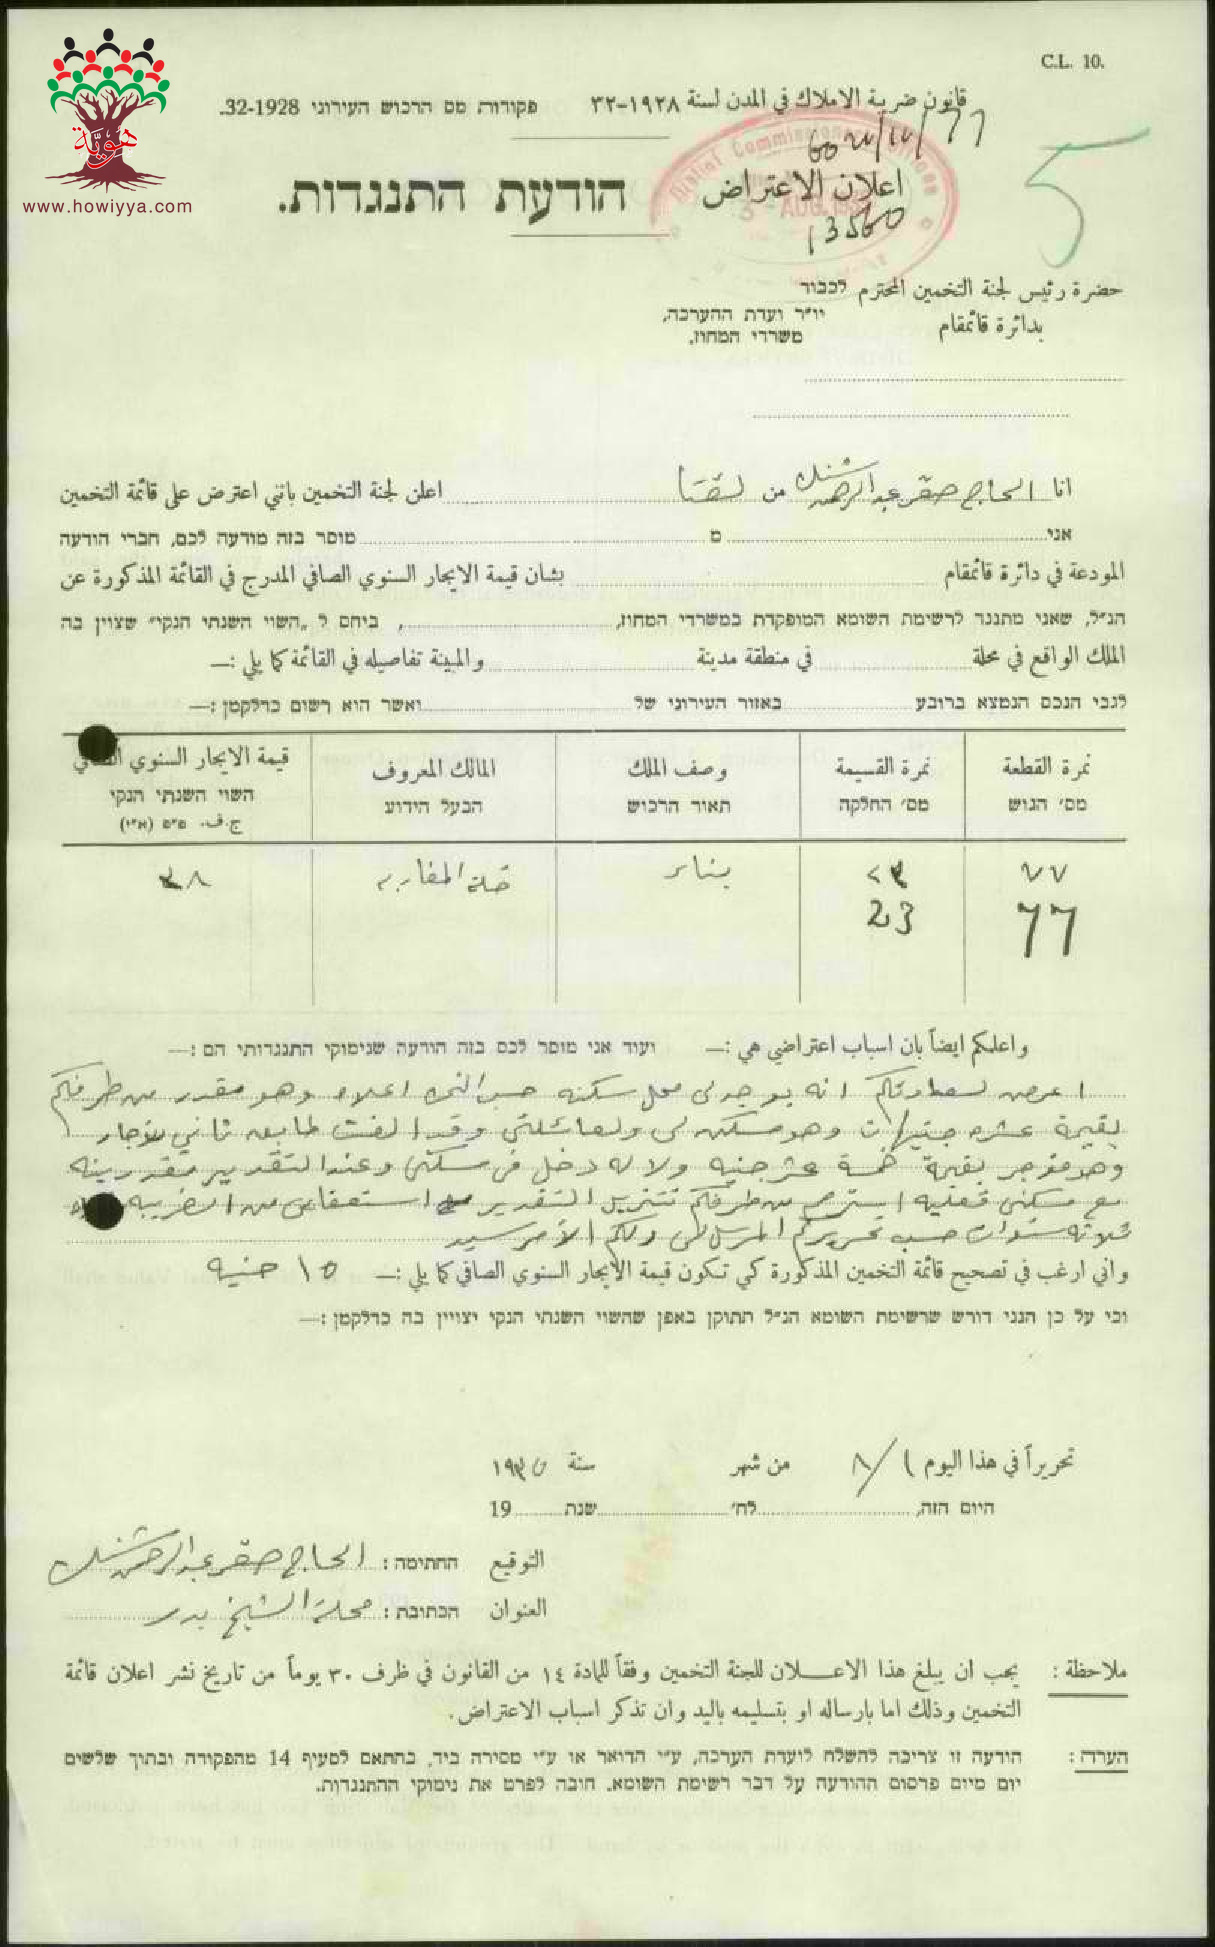 C.L. 10.
قانون ضريبة الاملاك في المدن لسنة ١٩٢٨-٣٢ פקודות מס הרכוש העירוני 32-1928.
هويّة
www.howiyya.com
District Commissioner
3 - AUG. 193
اعلان الاعتراض הודעת התנגדות.
13560
5
حضرة رئيس لجنة التخمين المحترم לכבוד
بدائرة قائمقام יו״ר ועדת ההערכה,
משרדי המחוז.
انا الحاج صقر عبد الرحمن من لفتا اعلن لجنة التخمين بانني اعترض على قائمة التخمين
אני מ מוסר בזה מודעה לכם, חברי הודעה
المودعة في دائرة قائمقام بشان قيمة الايجار السنوي الصافي المدرج في القائمة المذكورة عن
הנ״ל, שאני מתנגד לרשימת השומא המופקדת במשרדי המחוז, ביחס ל „השוי השנתי הנקי״ שצוין בה
الملك الواقع في محلة في منطقة مدينة والمبينة تفاصيله في القائمة كما يلي :—
לגבי הנכס הנמצא ברובע באזור העירוני של ואשר הוא רשום כדלקמן :—
نمرة القطعة نمرة القسيمة وصف الملك المالك المعروف قيمة الايجار السنوي الصافي
מס׳ הגוש מס׳ החלקה תאור הרכוש הבעל הידוע השוי השנתי הנקי
ج.ف. מ״מ (א״י)
٧٧ ٢٣ بناء ٣٨
77 23
واعلمكم ايضاً بان اسباب اعتراضي هي :— ועוד אני מוסר לכם בזה הודעה שנימוקי התנגדותי הם :—
اعرض لسعادتكم انه يوجد لي محل سكنه حسب النمر اعلاه وهو مقدر من طرفكم
بقيمة عشره جنيهات وهو مسكن لي ولعائلتي وقد طابق ثاني
وهو مؤجر بقيمة خمسة عشر جنيه ولا له دخل في سكني وعند التقدير مقدرينه
مع سكني فعليه استرحم من طرفكم تنزيل التقدير من الضريبه
ثلاثة سنوات حسب تحريركم المرسل لي ولكم الأمر سيدي
واني ارغب في تصحيح قائمة التخمين المذكورة كي تكون قيمة الايجار السنوي الصافي كما يلي :— ١٥ جنيه
וכי על כן הנני דורש שרשימת השומא הנ״ל תתוקן באפן שהשוי השנתי הנקי יצויין בה כדלקמן :—
تحريراً في هذا اليوم ١/٨ من شهر سنة ١٩٣٥
היום הזה, לח׳ שנת 19
التوقيع החתימה : الحاج صقر عبد الرحمن
العنوان הכתובת : محلة الشيخ بدر
ملاحظة : يجب ان يبلغ هذا الاعــلان للجنة التخمين وفقاً للمادة ١٤ من القانون في ظرف ٣٠ يوماً من تاريخ نشر اعلان قائمة
التخمين وذلك اما بارساله او بتسليمه باليد وان تذكر اسباب الاعتراض.
הערה : הודעה זו צריכה להשלח לועדת הערכה, ע״י הדואר או ע״י מסירה ביד, בהתאם לסעיף 14 מהפקודה ובתוך שלשים
יום מיום פרסום ההודעה על דבר רשימת השומא. חובה לפרט את נימוקי ההתנגדות.